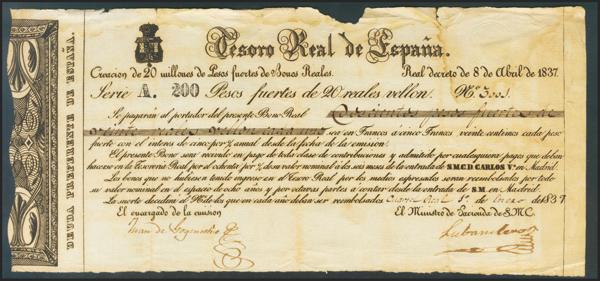 Tesoro Real de España.
Creacion de 20 millones de Pesos fuertes de Bonos Reales. Real decreto de 8 de Abril de 1837.
Serie A. 200 Pesos fuertes de 20 reales vellon. Nº. 3001
Se pagarán al portador del presente Bono Real Doscientos pesos fuertes de
veinte reales vellon cada uno seu en Francos á cinco Francos veinte centimos cada peso
fuerte con el interes de cinco por % anual desde la fecha de la emision.
El presente Bono será recibido en pago de toda clase de contribuciones y admitido por cualesquiera pagos que deban
hacerse en el Tesoreria Real por el cuenta por % de su valor nominal á los seis meses de la entrada de S.M.C. D. CARLOS Vº. en Madrid.
Los bonos que no hubiesen tenido empleo en el Tesoro Real por los medios espresados seran reembolsados por todo
su valor nominal en el espacio de ocho años y por octavas partes á contar desde la entrada de S.M. en Madrid.
La suerte decidirá el de los que en cada año deban ser reembolsados Real 1º. de Enero de 1837
El encargado de la emision El Ministro de Hacienda de S.M.C.
Juan de
DEUDA PREFERENTE DE ESPAÑA.